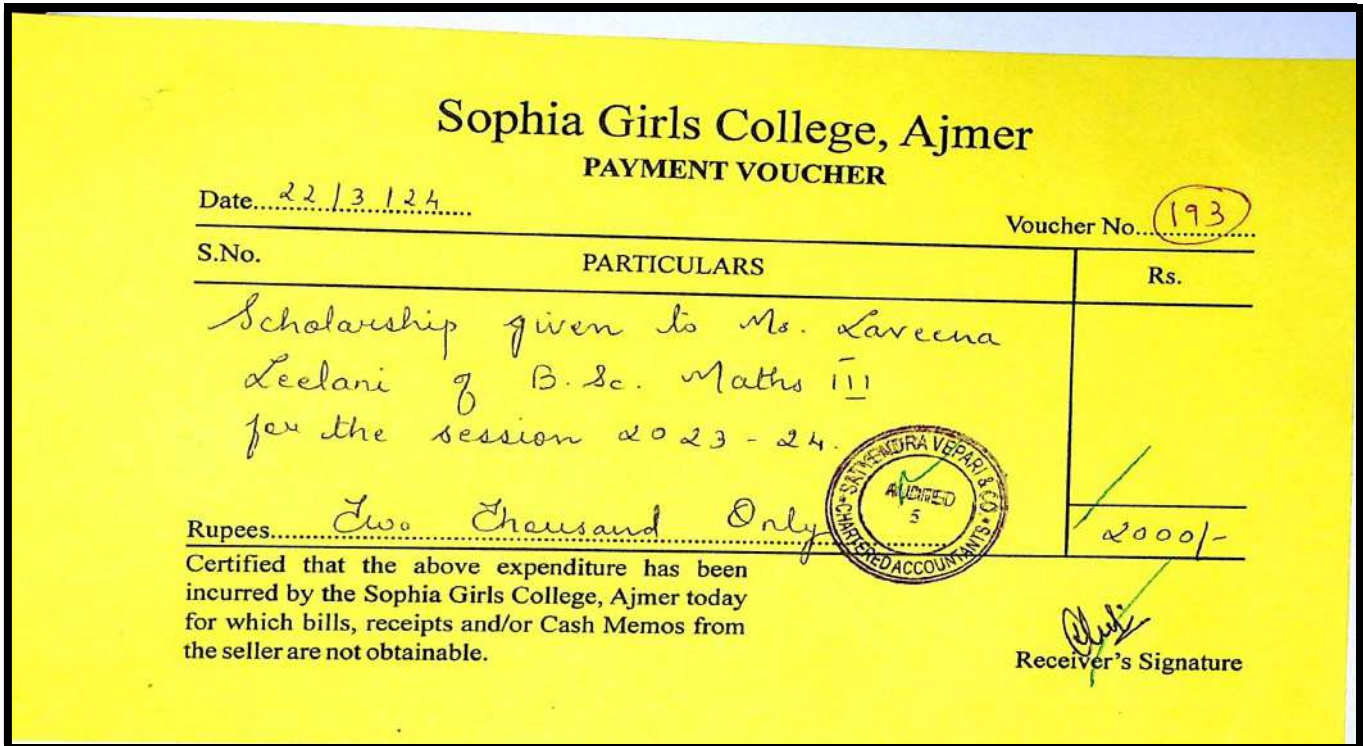 Sophia Girls College, Ajmer
PAYMENT VOUCHER
Date....22/3/24....
Voucher No...193....
S.No. PARTICULARS Rs.
Scholarship given to Ms. Laveena
Leelani of B.Sc. Maths III
for the session 2023-24.
SATYENDRA VEPARI & CO.
AUDITED
5
CHARTERED ACCOUNTANTS
Rupees....Two Thousand Only.... 2000/-
Certified that the above expenditure has been
incurred by the Sophia Girls College, Ajmer today
for which bills, receipts and/or Cash Memos from
the seller are not obtainable.
Receiver's Signature